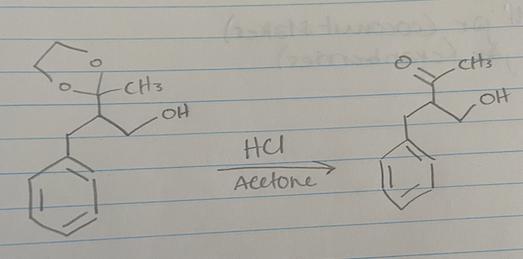 O
O
CH3
OH
HCl
Acetone
O
CH3
OH